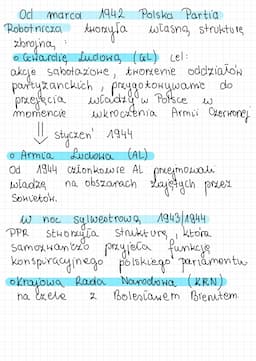 Od marca 1942 Polska Partia
Robotnicza tworzyła własną strukturę
zbrojną:
• Gwardię Ludową (GL) cel:
akcje sabotażowe, tworzenie oddziałów
partyzanckich, przygotowywanie do
przejęcia władzy w Polsce w
momencie wkroczenia Armii Czerwonej
styczeń 1944
• Armia Ludowa (AL)
Od 1944 członkowie AL przejmowali
władzę na obszarach zajętych przez
Sowietów.
W noc sylwestrową 1943/1944
PPR stworzyła strukturę, która
samozwańczo przyjęła funkcję
konspiracyjnego polskiego parlamentu
• Krajową Radę Narodową (KRN)
na czele z Bolesławem Bierutem